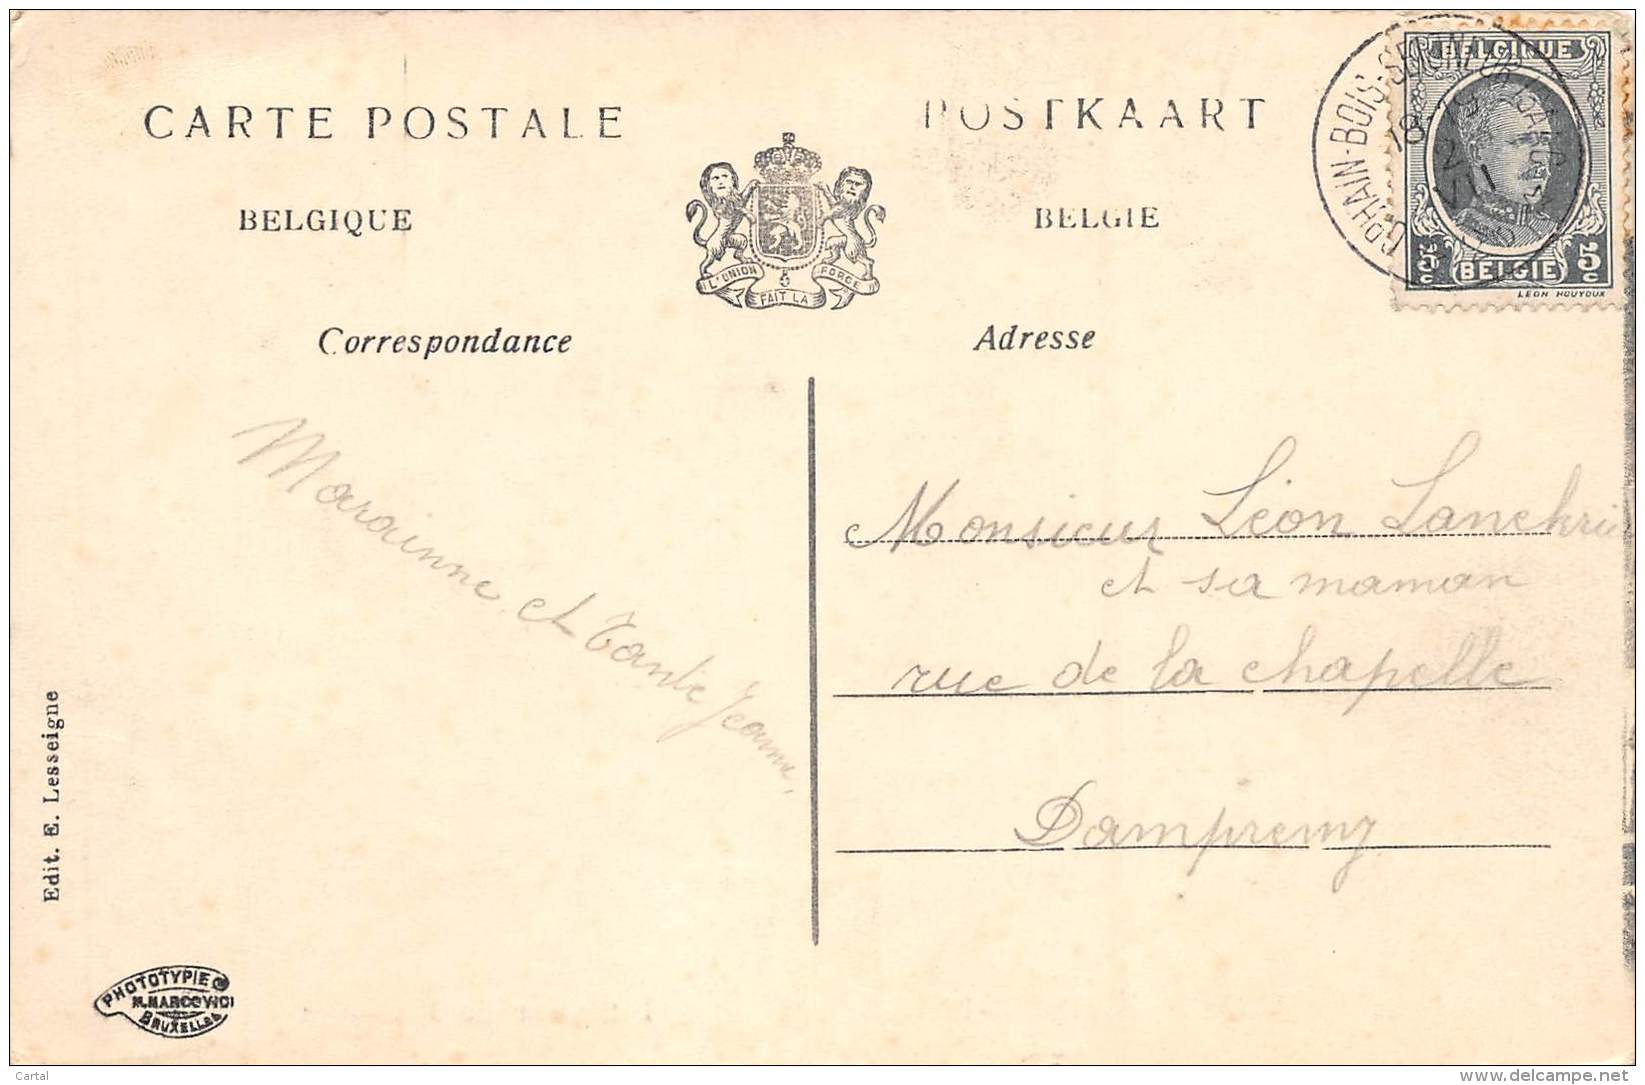 CARTE POSTALE
POSTKAART
BELGIQUE
BELGIE
L'UNION FAIT LA FORCE
BELGIQUE
5c BELGIE 5c
LEON HOUYOUX
OPHAIN-BOIS-SEIGNEUR-ISAAC
18-19
2
VII
Correspondance
Adresse
Marainne et Tante Jeanne,
Monsieur Léon Lanchri
et sa maman
rue de la chapelle
Dampremy
Edit. E. Lesseigne
PHOTOTYPIE
M. MARCOVICI
BRUXELLES
Cartal
www.delcampe.net